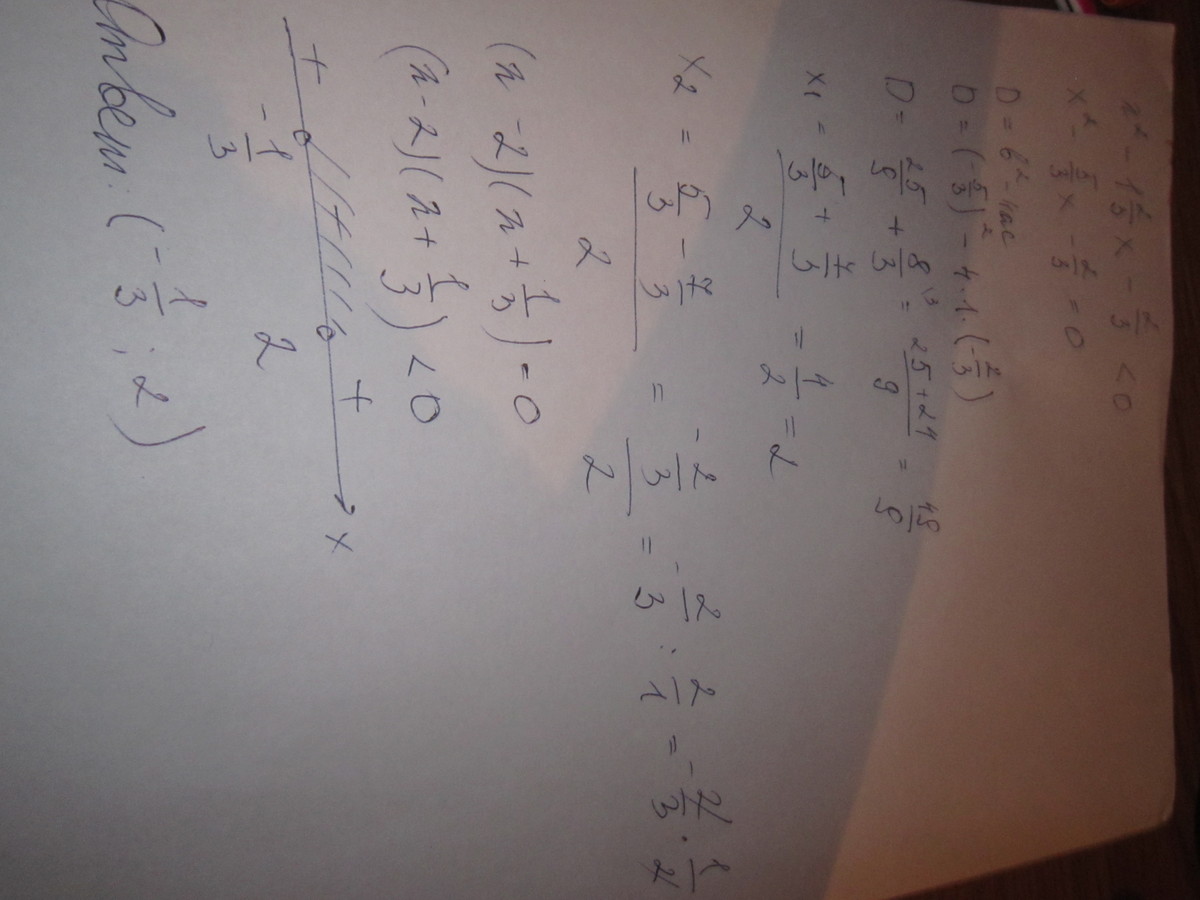 x² - 1 2/3 x - 2/3 < 0
x² - 5/3 x - 2/3 = 0
D = b² - 4ac
D = (-5/3)² - 4 · 1 · (-2/3)
D = 25/9 + 8/3 \3 = (25+24)/9 = 49/9
x1 = (5/3 + 7/3)/2 = 4/2 = 2
x2 = (5/3 - 7/3)/2 = (-2/3)/2 = -2/3 : 2/1 = -2/3 · 1/2
(x - 2)(x + 1/3) = 0
(x - 2)(x + 1/3) < 0
+ + x
-1/3 2
Ответ: (-1/3 ; 2)